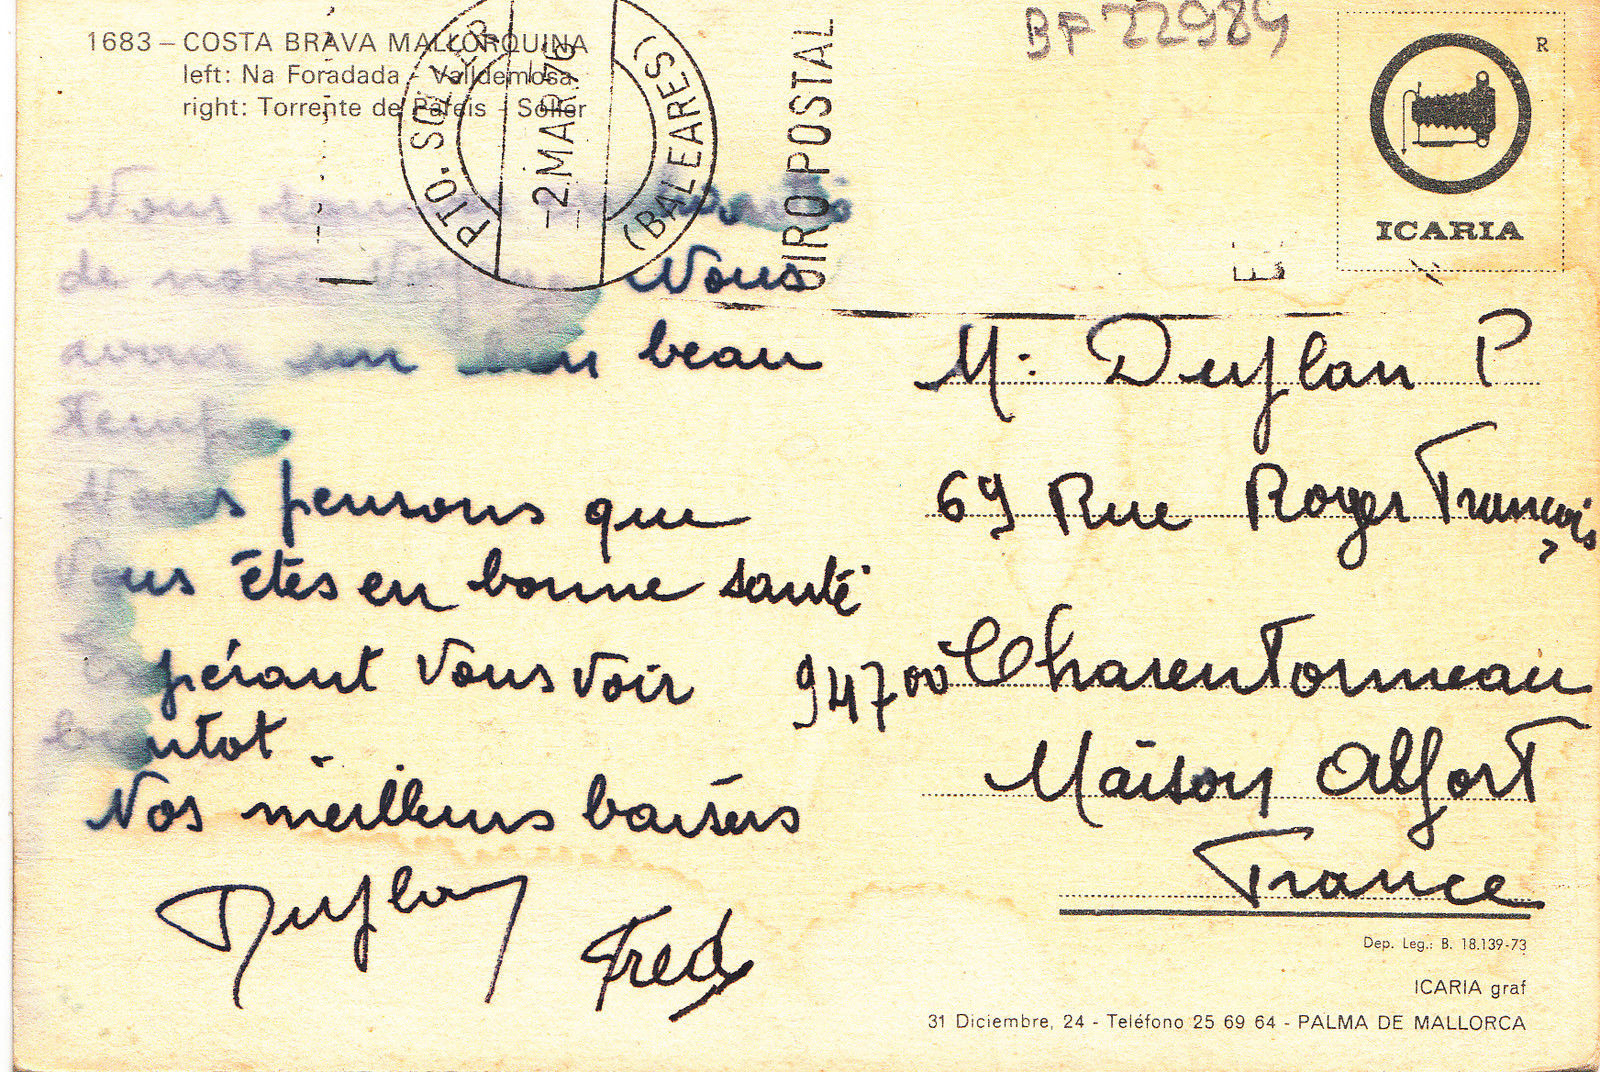 1683 – COSTA BRAVA MALLORQUINA
left: Na Foradada - Valldemosa
right: Torrente de Pareis - Soller
PTO. SOLLER
-2 MAR. 76
(BALEARES)
GIRO POSTAL
BF 22984
R
ICARIA
Nous sommes
de notre voyage Nous
avons un bien beau
Temps.
Nous pensons que
Vous êtes en bonne santé
Espérant Vous Voir
bientot.
Nos meilleurs baisers
Duflan
Fred
Mr: Duflan P
69 Rue Roger François
94700 Charentonneau
Maison Alfort
France
Dep. Leg.: B. 18.139-73
ICARIA graf
31 Diciembre, 24 - Teléfono 25 69 64 - PALMA DE MALLORCA